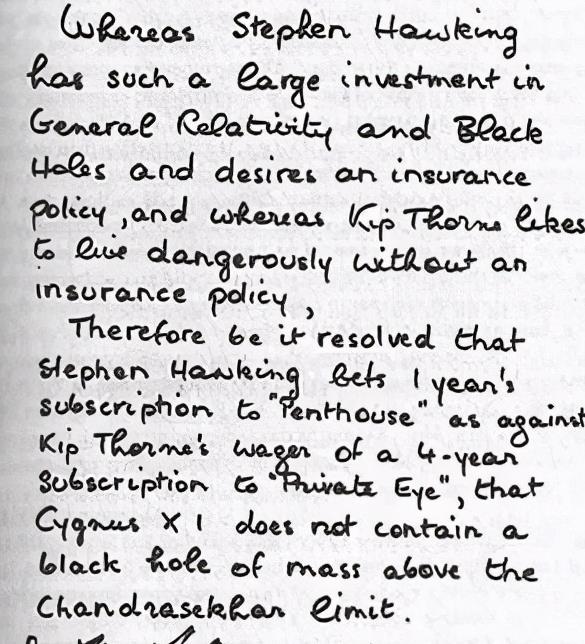 Whereas Stephen Hawking
has such a large investment in
General Relativity and Black
Holes and desires an insurance
policy, and whereas Kip Thorne likes
to live dangerously without an
insurance policy,
Therefore be it resolved that
Stephen Hawking bets 1 year's
subscription to "Penthouse" as against
Kip Thorne's wager of a 4-year
subscription to "Private Eye", that
Cygnus X 1 does not contain a
black hole of mass above the
Chandrasekhar limit.